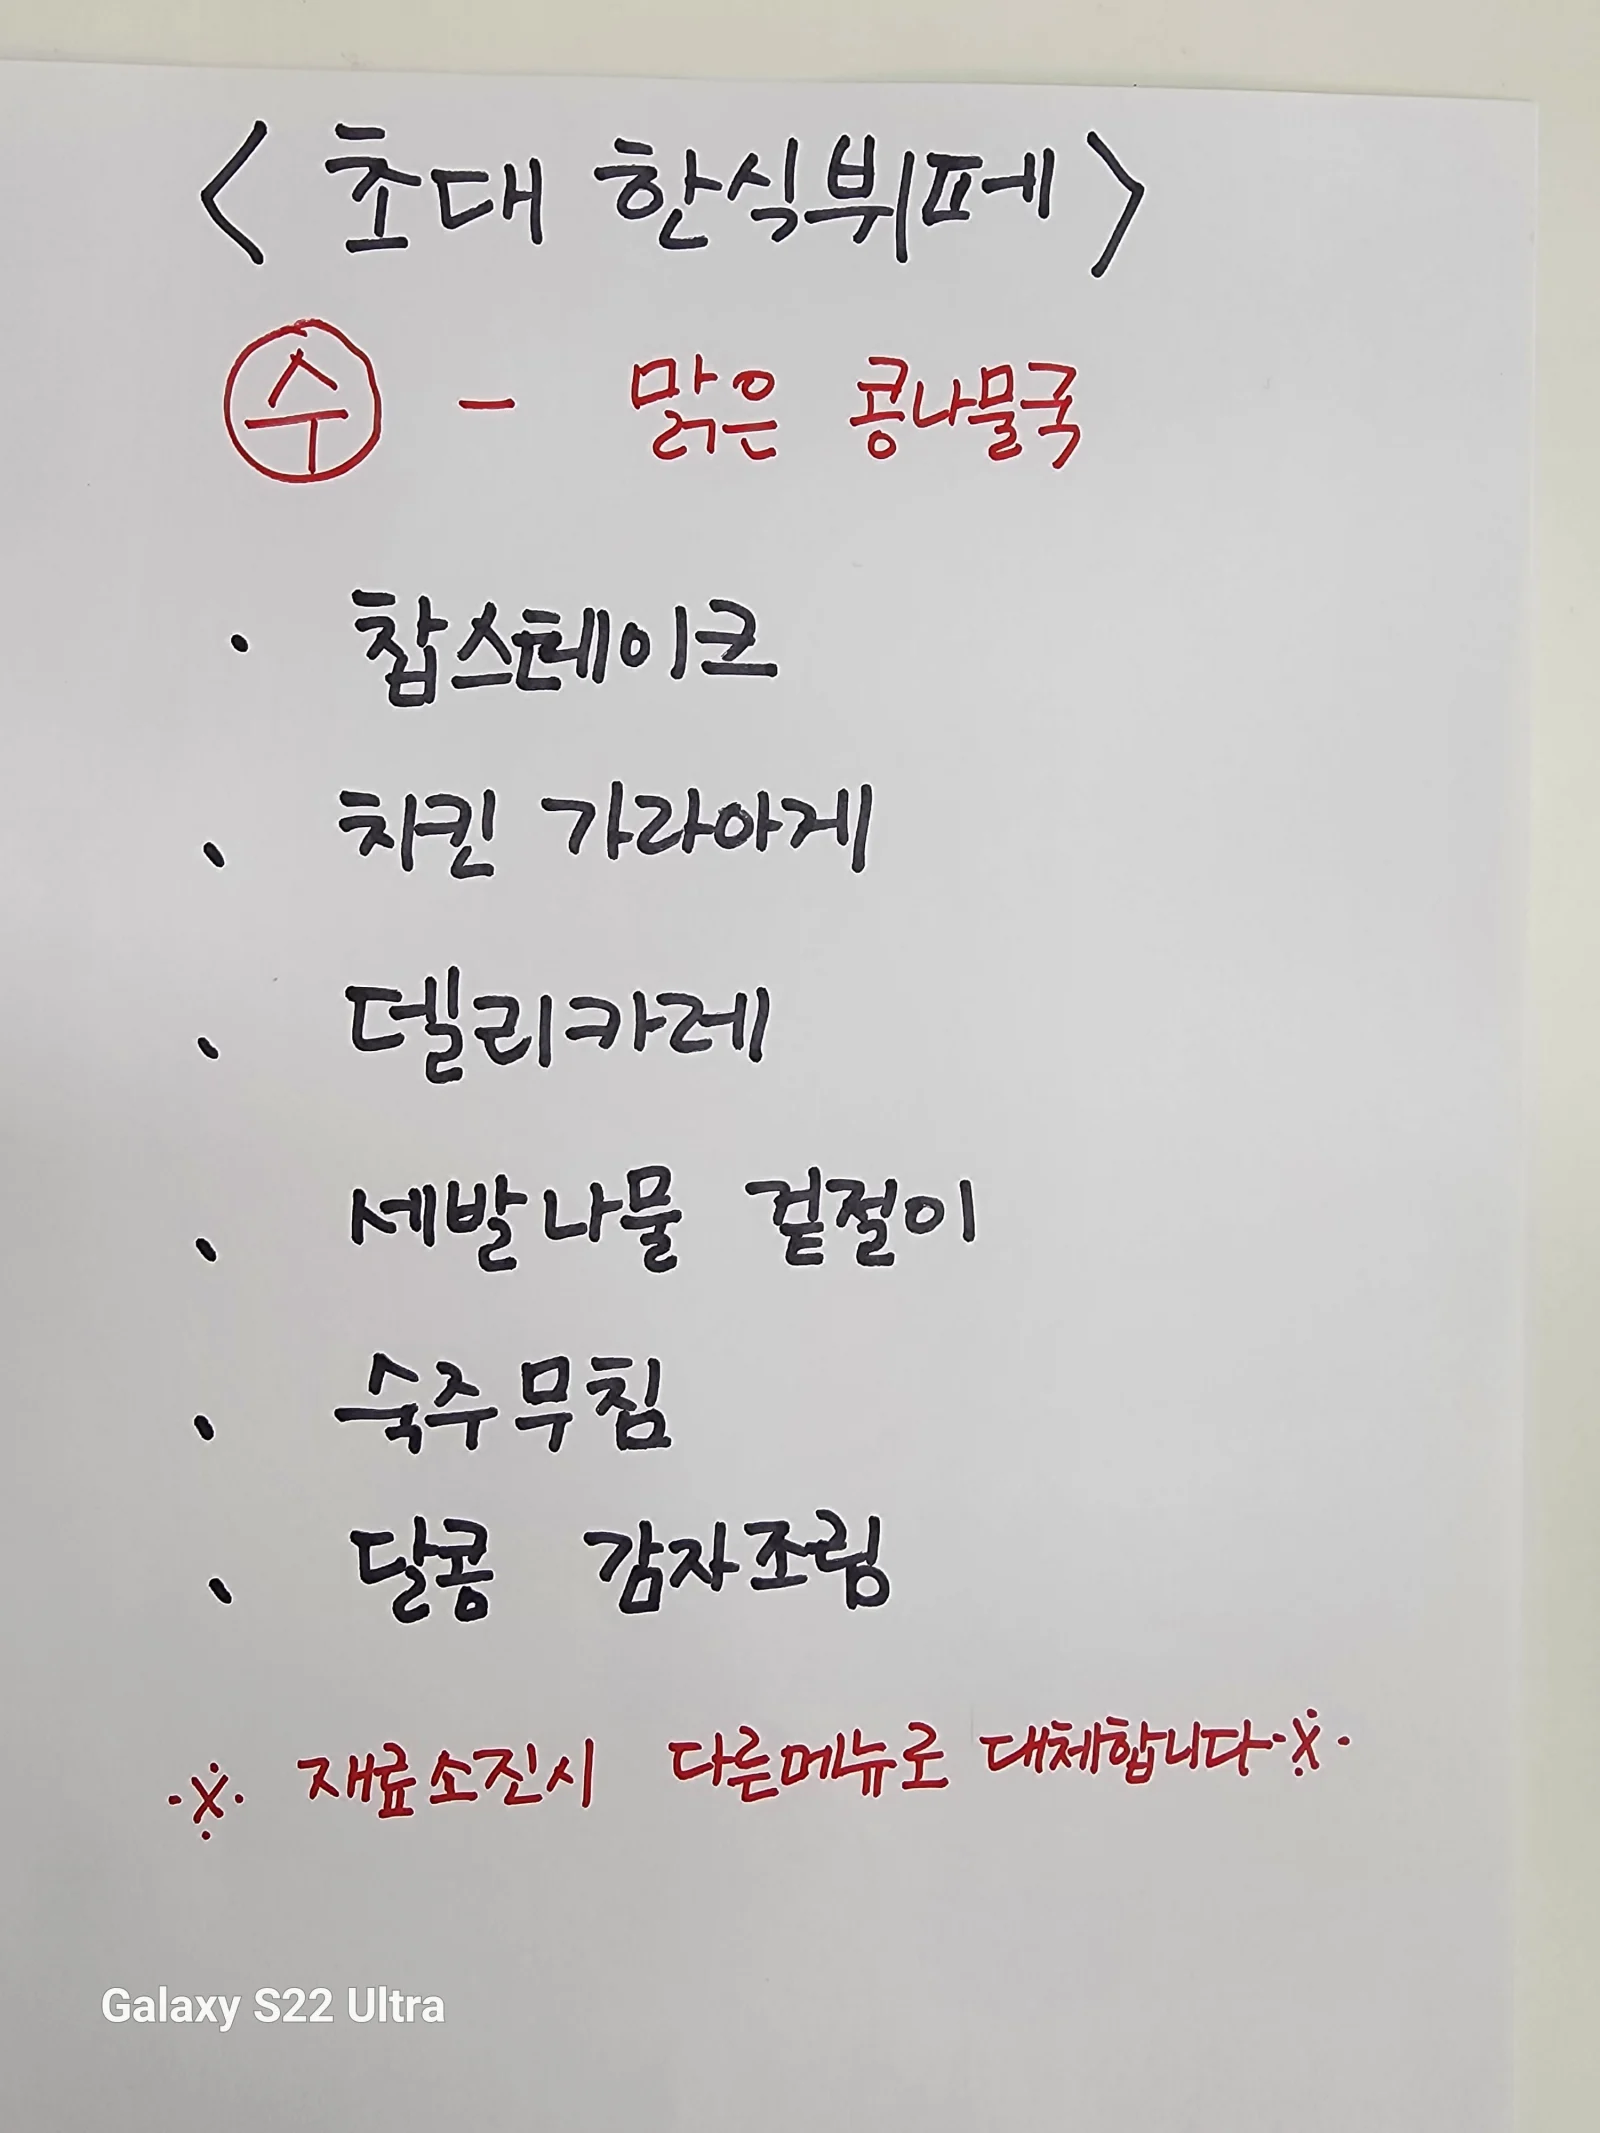 < 초대 한식뷔페 >
수 - 맑은 콩나물국
· 찹스테이크
· 치킨 가라아게
· 델리카레
· 세발나물 겉절이
· 숙주무침
· 달콩 감자조림
※ 재료소진시 다른메뉴로 대체합니다※
Galaxy S22 Ultra